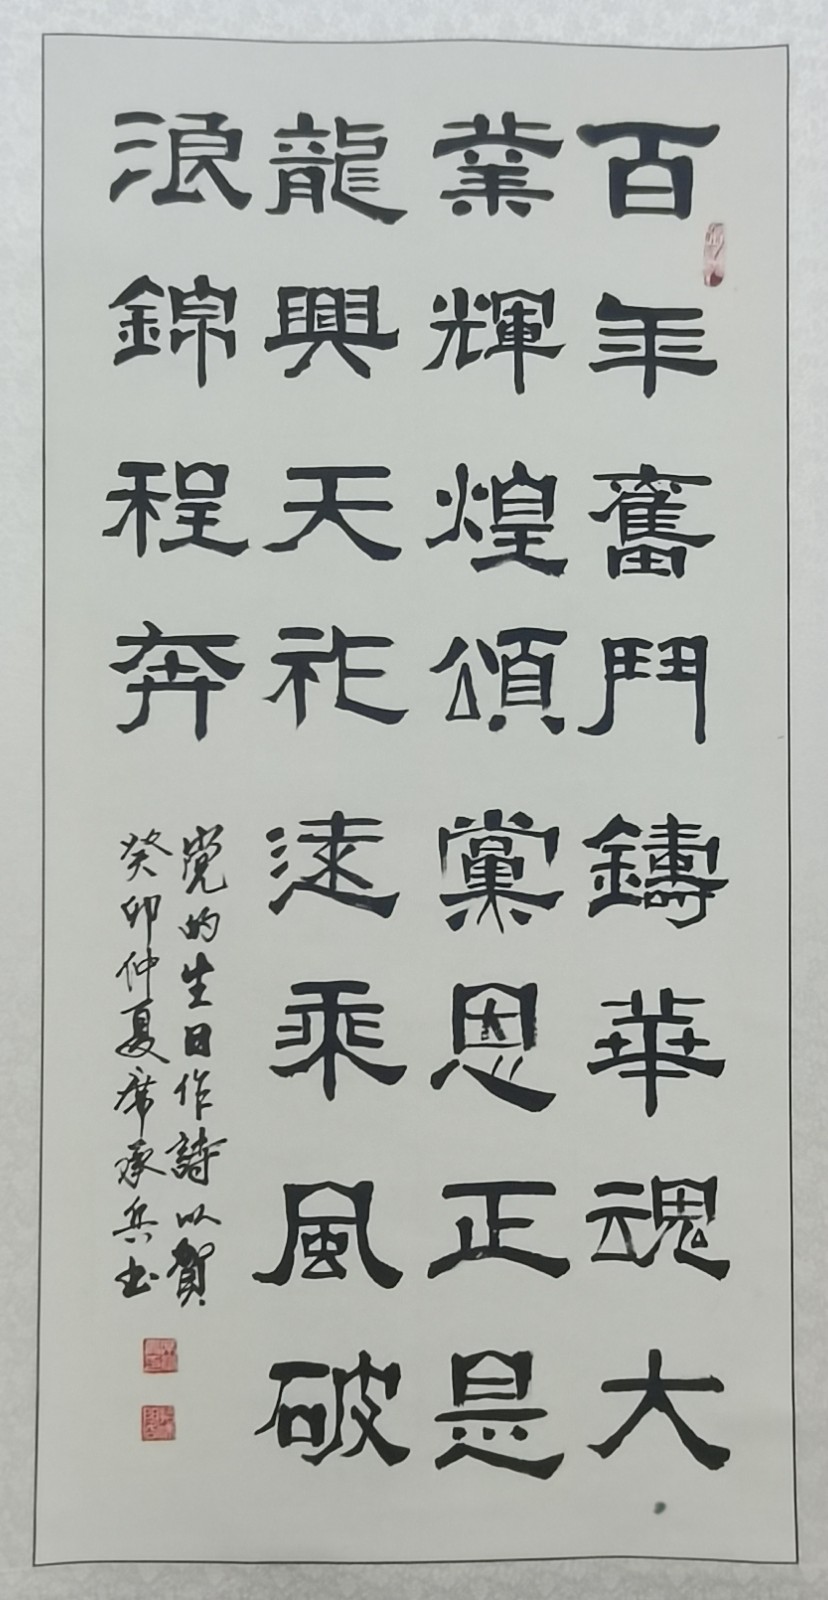 百年奮鬥鑄華魂大
業輝煌頌黨恩正是
龍興天祚遠乘風破
浪錦程奔
党的生日作詩以賀
癸卯仲夏席承兵书